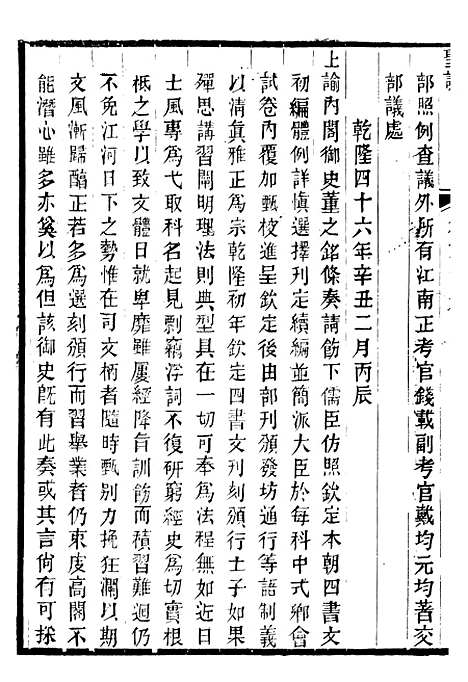 聖訓
部照例查議外所有江南正考官錢載副考官戴均元均著交
部議處
乾隆四十六年辛丑二月丙辰
上諭內閣御史董之銘條奏請飭下儒臣仿照欽定本朝四書文
初編體例詳慎選擇刊定續編並簡派大臣於每科中式鄉會
試卷內覆加甄校進呈欽定後由部刊頒發坊通行等語制義
以清真雅正為宗乾隆初年欽定四書文刊刻頒行士子如果
殫思講習闡明理法則典型具在一切可奉為法程無如近日
士風專為弋取科名起見剽竊浮詞不復研窮經史為切實根
柢之學以致文體日就卑靡雖屢經降旨訓飭而積習難迴仍
不免江河日下之勢惟在司文柄者隨時甄別力挽狂瀾以期
文風漸歸醇正若多為選刻頒行而習舉業者仍束庋高閣不
能潛心雖多亦奚以為但該御史既有此奏或其言尚有可採